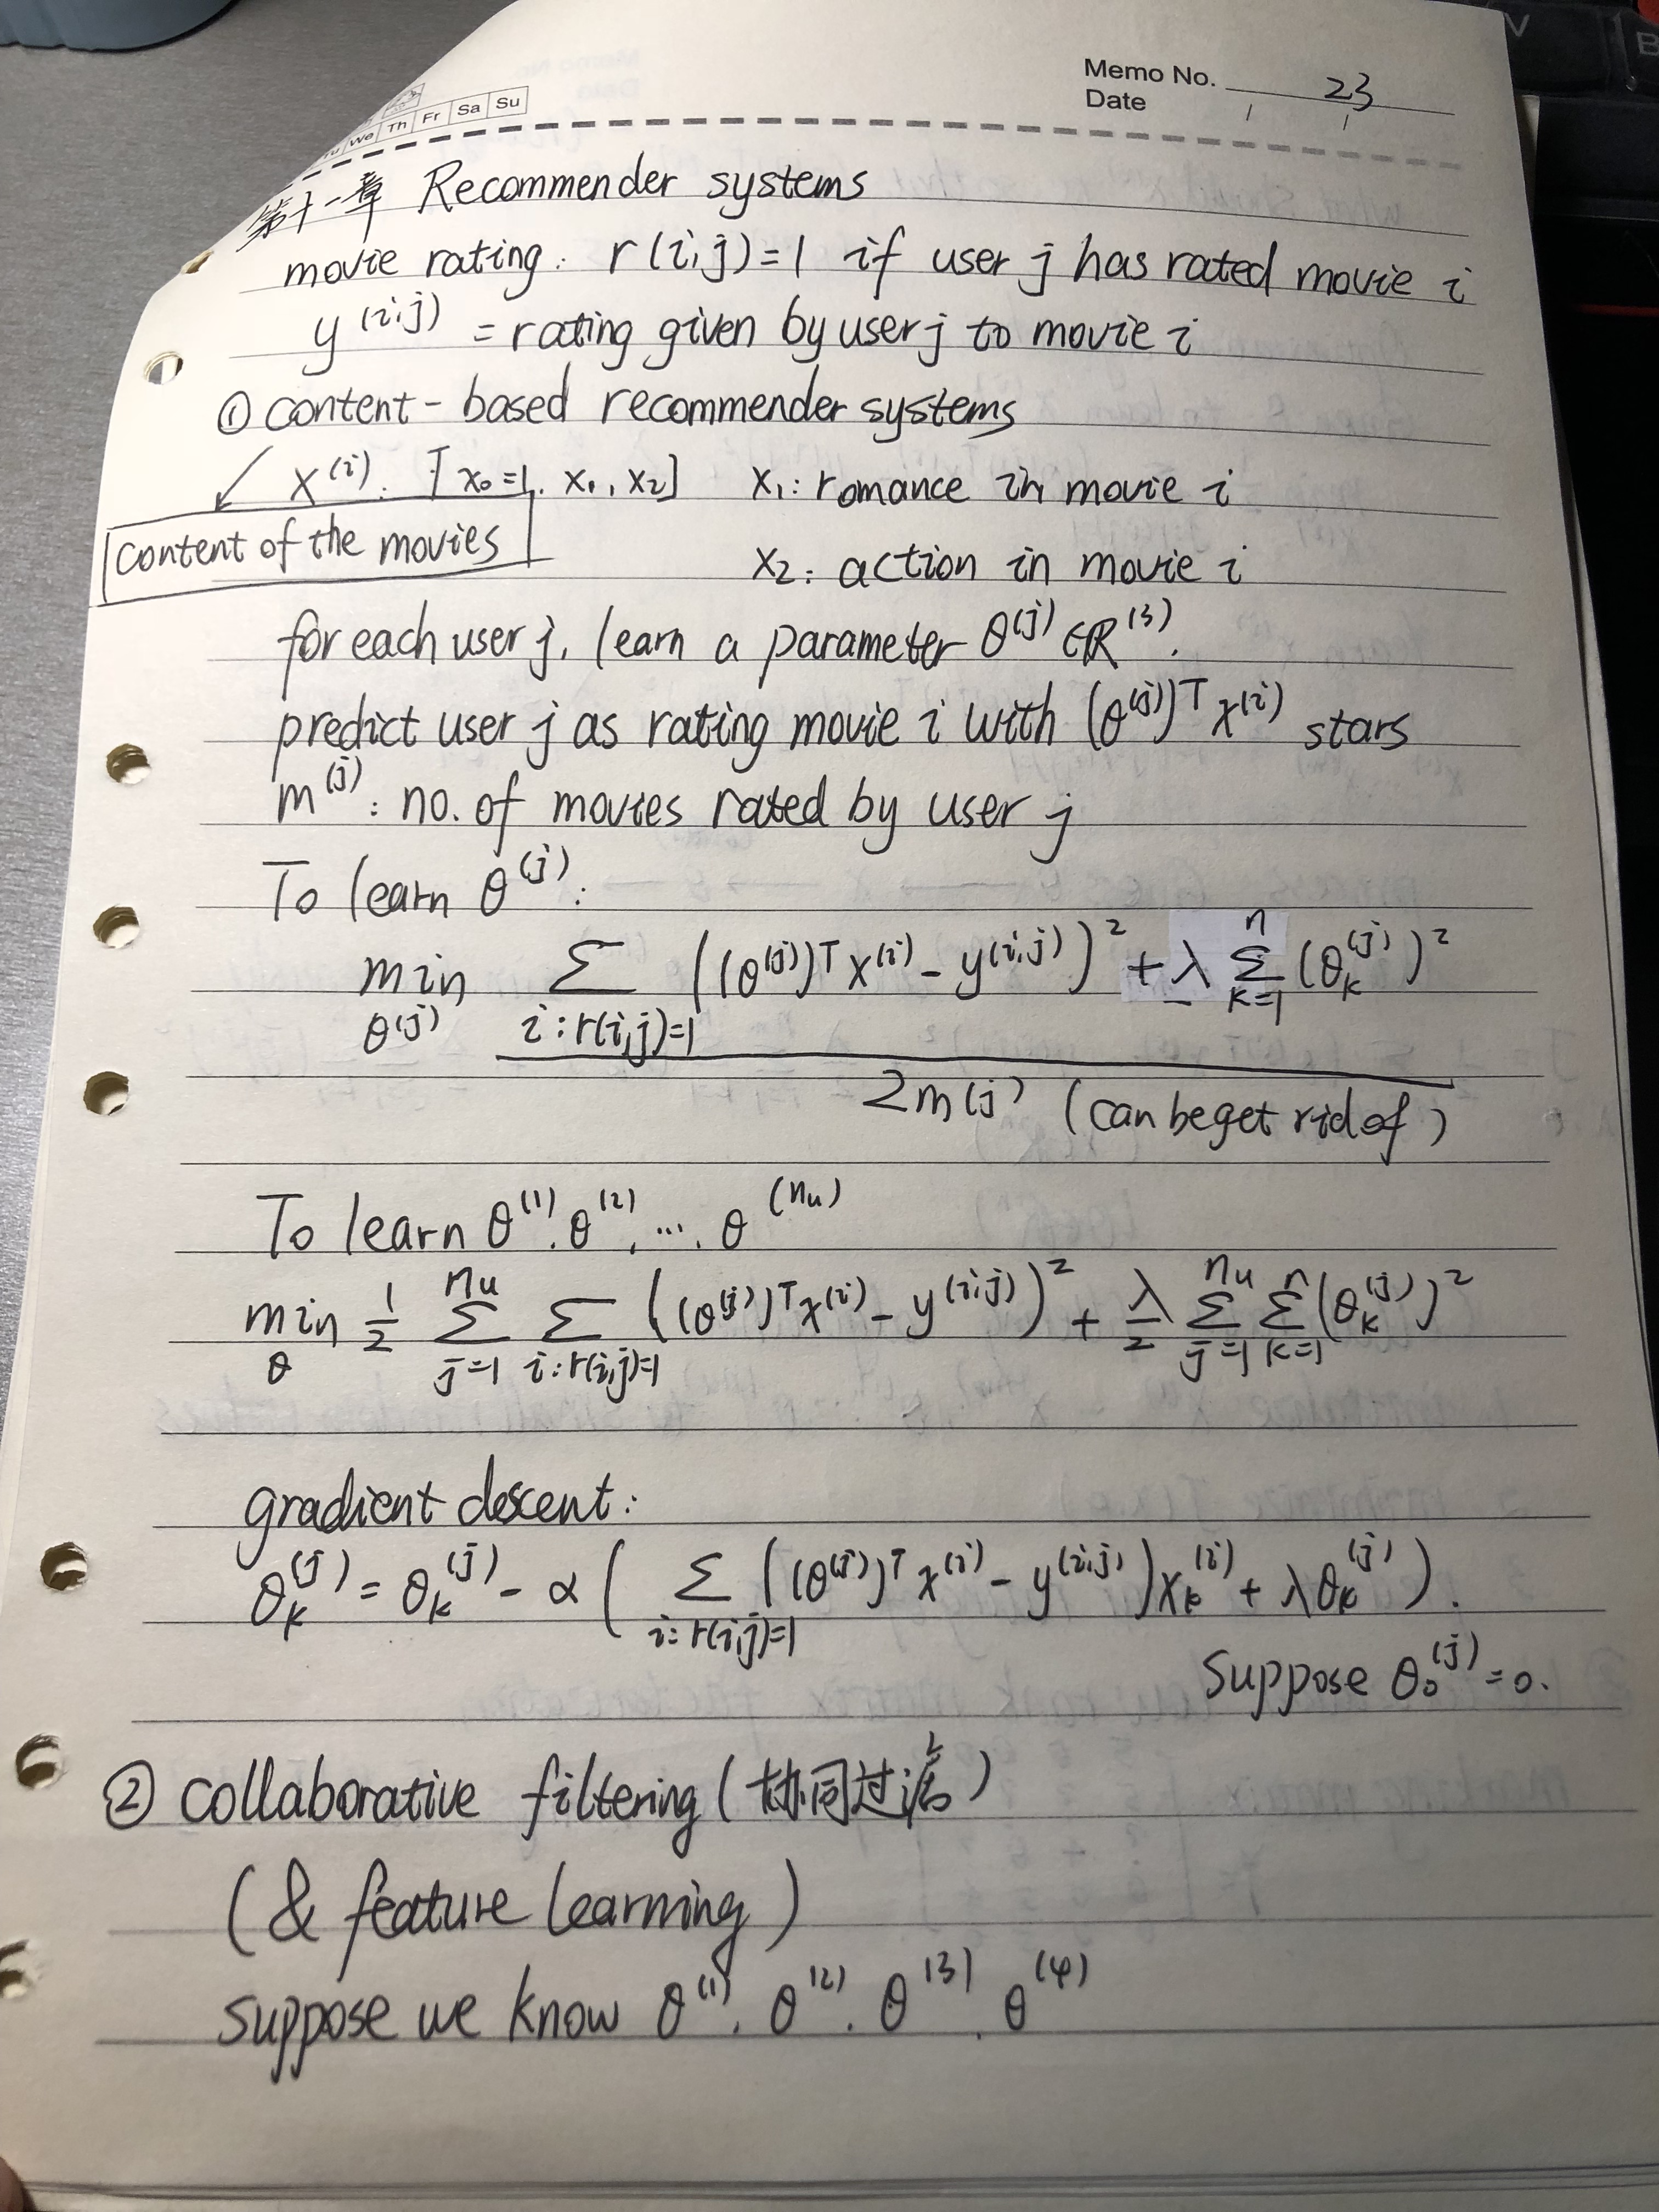 Memo No. 23
Date / /
We Th Fr Sa Su
第十一章 Recommender systems
movie rating: r(i,j)=1 if user j has rated movie i
y^(i,j) = rating given by user j to movie i
① content-based recommender systems
x^(i): [x₀=1, x₁, x₂] x₁: romance in movie i
content of the movies
x₂: action in movie i
for each user j, learn a parameter θ^(j) ∈ R^(3).
predict user j as rating movie i with (θ^(j))^T x^(i) stars
m^(j): no. of movies rated by user j
To learn θ^(j):
min_θ(j) Σ_{i:r(i,j)=1} ((θ^(j))^T x^(i) - y^(i,j))² + λ Σ_{k=1}^{n} (θ_k^(j))²
2m(j) (can be get rid of)
To learn θ^(1), θ^(2), ..., θ^(nu)
min_θ 1/2 Σ_{j=1}^{nu} Σ_{i:r(i,j)=1} ((θ^(j))^T x^(i) - y^(i,j))² + λ/2 Σ_{j=1}^{nu} Σ_{k=1}^{n} (θ_k^(j))²
gradient descent:
θ_k^(j) = θ_k^(j) - α ( Σ_{i:r(i,j)=1} ((θ^(j))^T x^(i) - y^(i,j)) x_k^(i) + λθ_k^(j) ).
Suppose θ₀^(j) = 0.
② collaborative filtering (协同过滤)
(& feature learning)
suppose we know θ^(1), θ^(2), θ^(3), θ^(4)